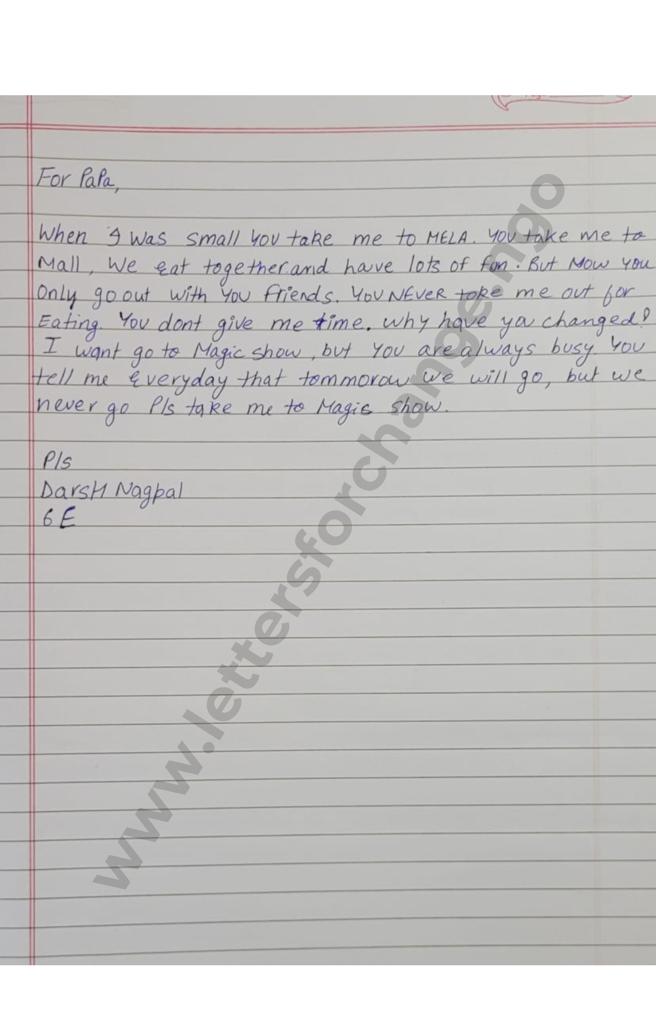 For PaPa,
When I was small you take me to MELA. YOU take me to
Mall, We Eat together and have lots of fun. But NOW YOU
Only go out with You friends. YOU NEVER take me out for
Eating. You dont give me time. why have ya changed?
I want go to Magic show, but You are always busy You
tell me Everyday that tommorow we will go, but we
never go Pls take me to Magic show.
Pls
DarsH Nagpal
6 E
www.lettersforchange.ngo